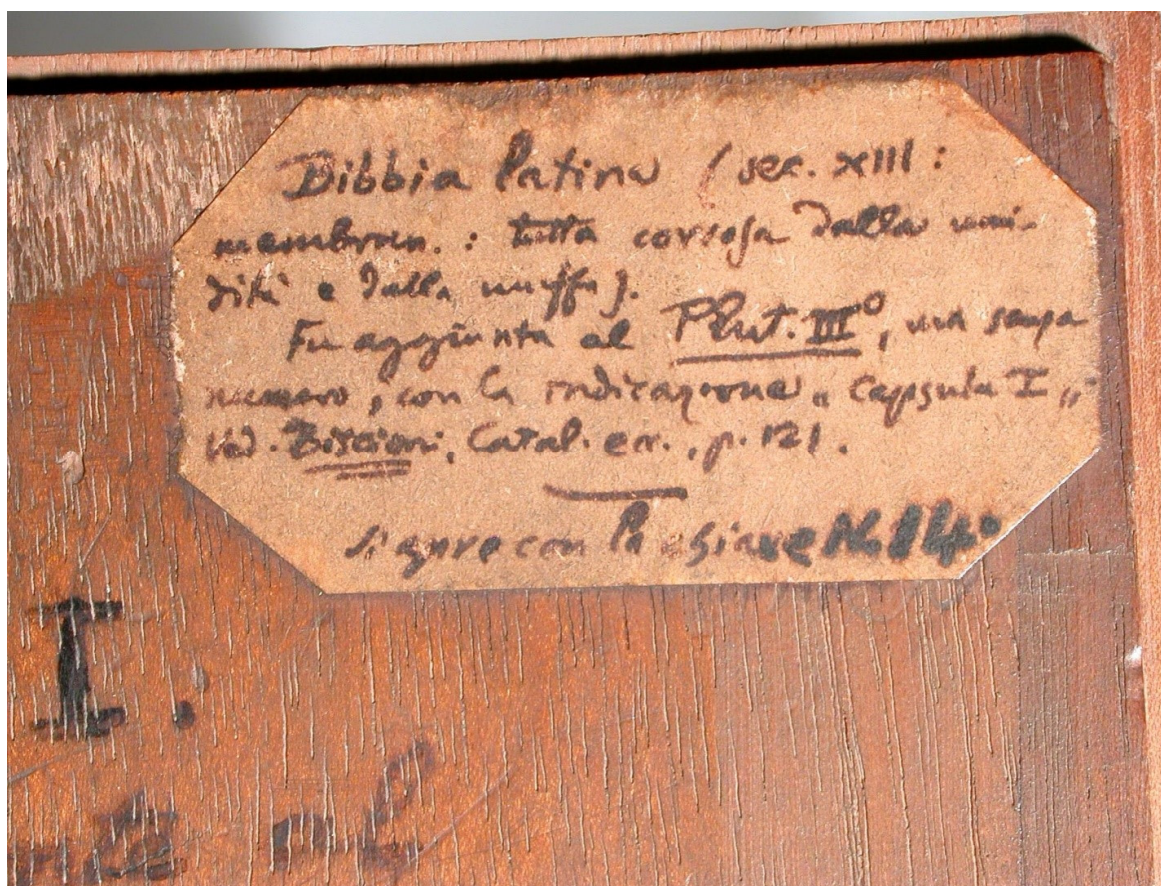 Bibbia latina (sec. XIII:
membran.: tutta corrosa dalla umi-
dità e dalla muffa).
Fu aggiunta al Plut. III°, ma senza
numero, con la indicazione „ Capsula I „
Ved. Biscioni, Catal. ecc., p. 121.
Si apre con la chiave N. 14°
I.